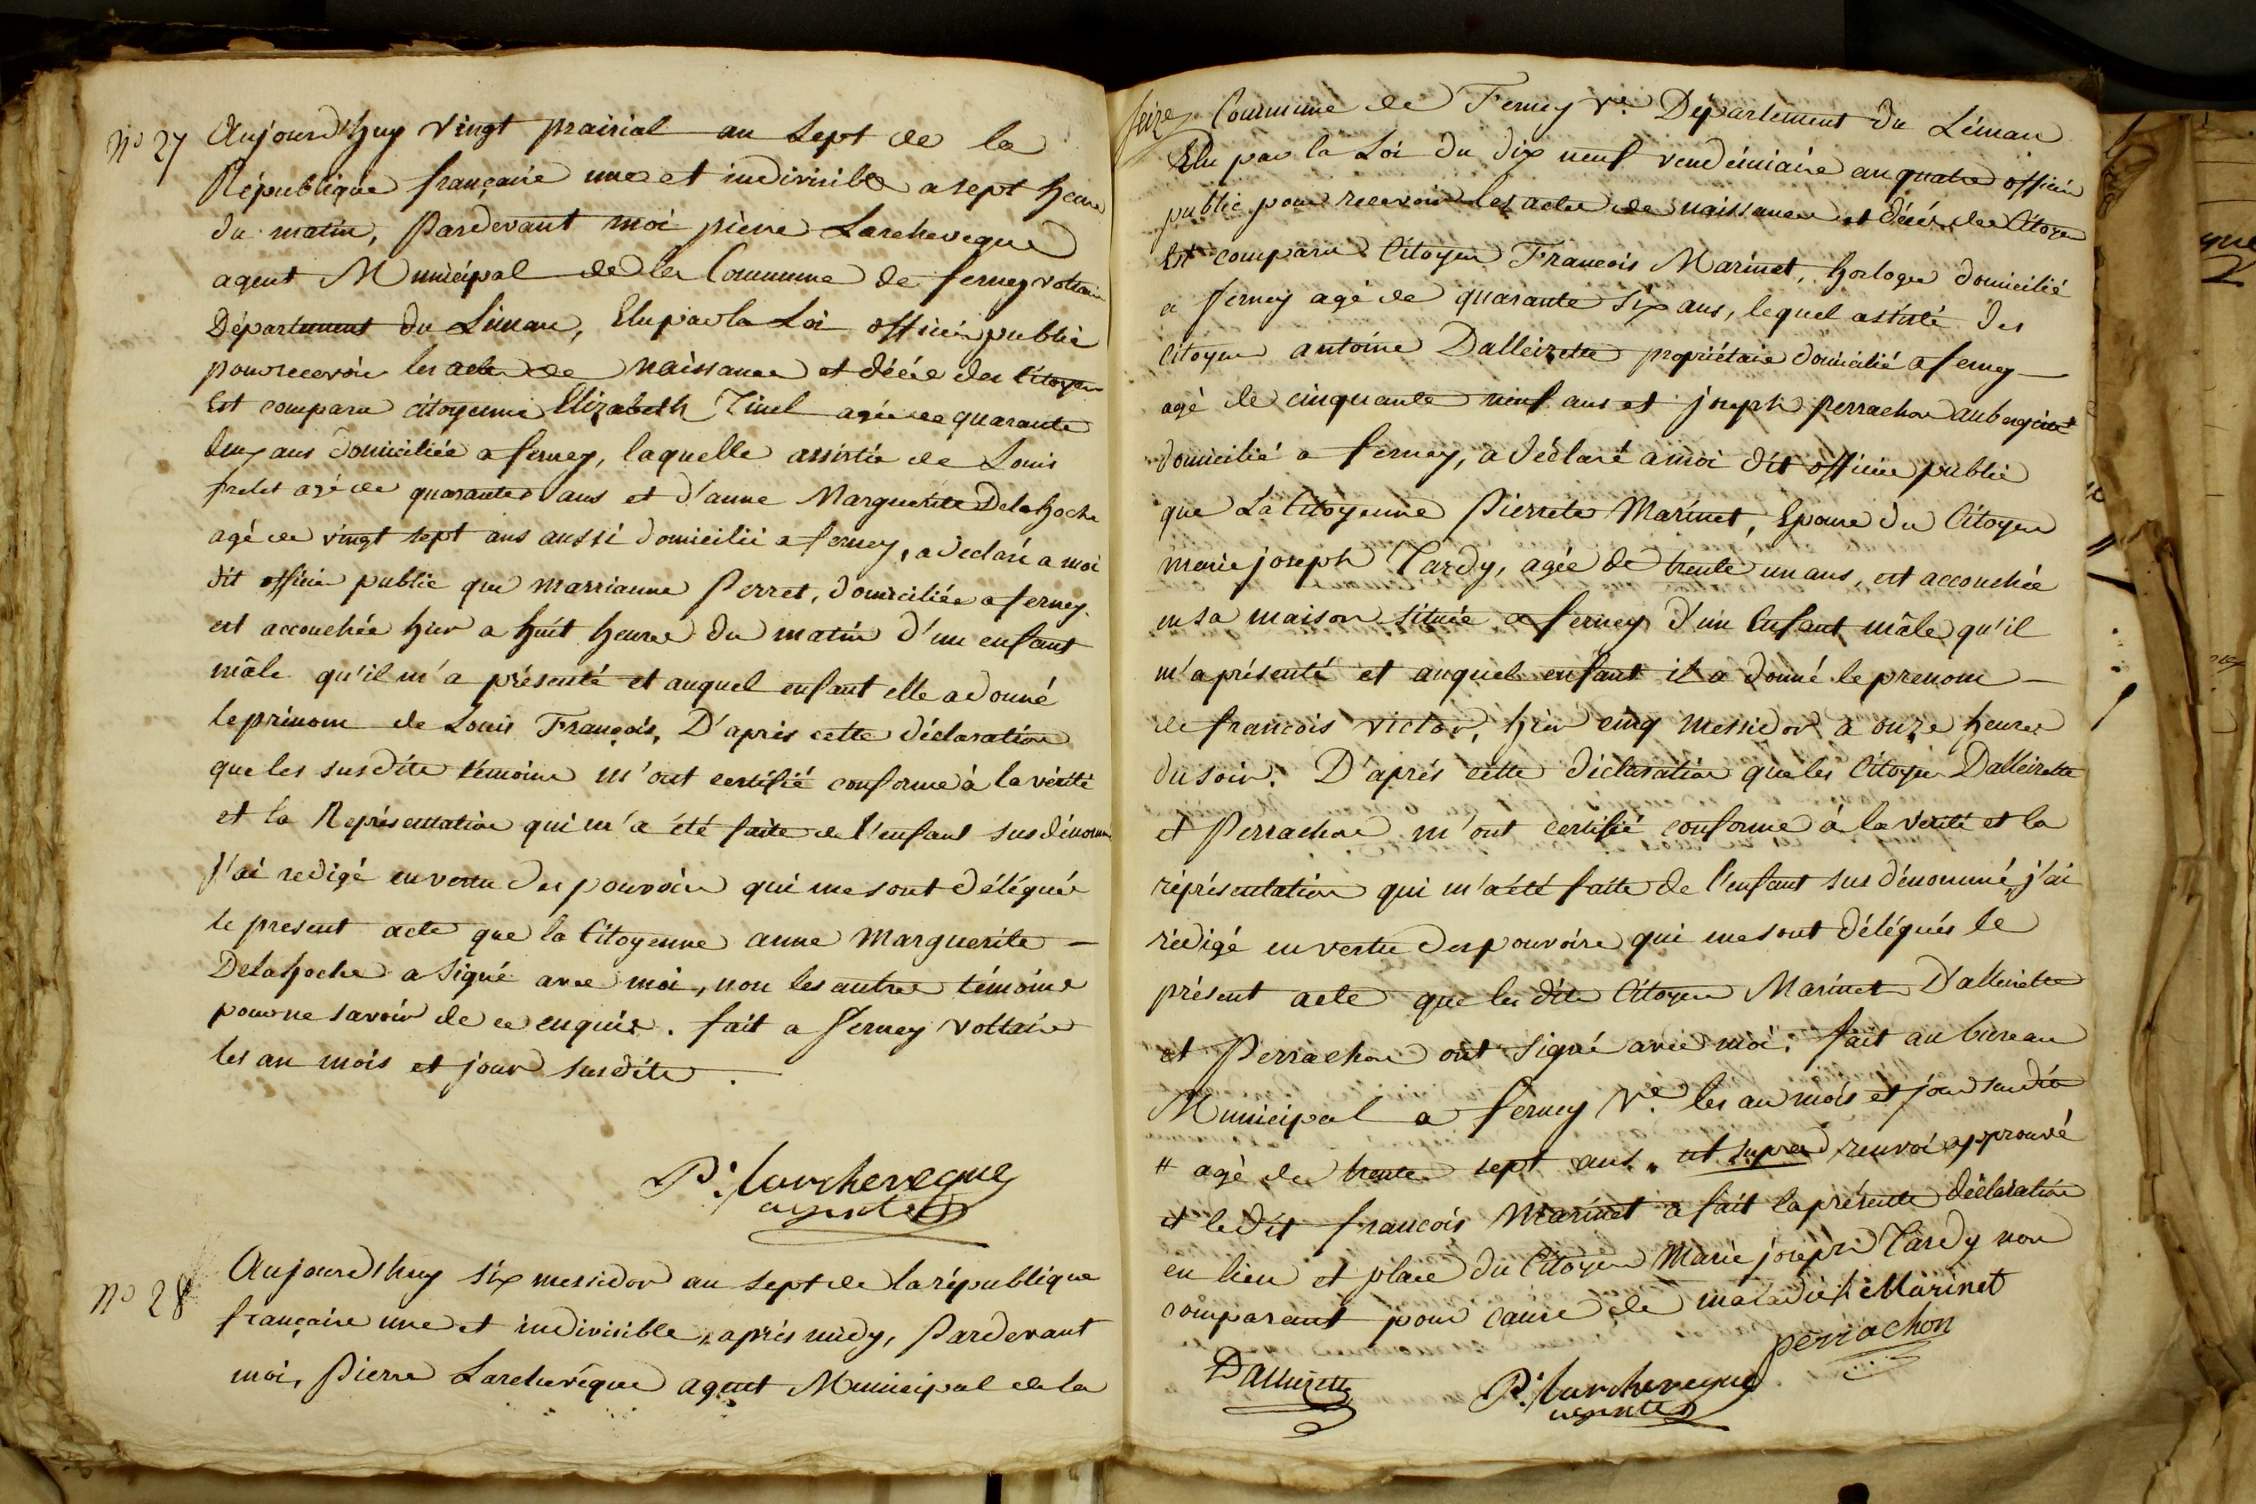 No 27
Aujourd'huy vingt prairial an sept de la
République française une et indivisible a sept heure
du matin, Pardevant moi pierre Larcheveque
agent Municipal de la Commune de ferney voltaire
Département du Léman, Elu par la Loi officier public
pour recevoir les acte de naissance et décès des Citoyen
Est comparu citoyenne Elizabeth Tinel agée de quarante
deux ans domiciliée a ferney, laquelle assistée de Louis
agé de quarante ans et d'anne Marguerite Delahoche
agé de vingt sept ans aussi domicilié a ferney, a déclaré a moi
dit officier public que marrianne Perret, domiciliée a ferney.
est accouchée hier a huit heures du matin d'un enfant
mâle qu'il m'a présenté et auquel enfant elle a donné
le prénom de Louis François, D'après cette déclaration
que les susdite témoins m'ont certifié conforme à la vérité
et la Représentation qui m'a été faite de l'enfant susdénommé
j'ai redigé en vertu des pouvoirs qui me sont délégués
le present acte que la Citoyenne anne Marguerite —
Delahoche a signé avec moi, non les autres témoins
pour ne savoir de ce enquis. fait a ferney voltaire
les an mois et jour susdits.
P. Larcheveque
agent
No 28
Aujourd'huy six messidor an sept de la république
française une et indivisible, après midy, Pardevant
moi, Pierre Larchevêque agent Municipal de la
seize
Commune de Ferney Ve. Département du Léman
Elu par la Loi du dix neuf vendémiaire an quatre officier
public pour recevoir les actes de naissance et décès des Citoyen
Est comparu Citoyen François Marinet, horloger domicilié
a ferney agé de quarante six ans, lequel assisté des
citoyen antoine Dalleizette propriétaire domicilié a ferney —
agé de cinquante neuf ans et joseph perrachon aubergiste #
domicilié a ferney, a déclaré a moi dit officier public
que La Citoyenne Pierrete Marinet, Epouse du Citoyen
marie joseph Tardy, agée de trente un ans, est accouchée
en sa maison située a ferney d'un Enfant mâle qu'il
m'a présenté et auquel enfant il a donné le prenom —
de francois victor, hier cinq messidor à onze heures
du soir. D'après cette déclaration que les Citoyen Dalleizette
et Perrachon m'ont certifié conforme à la vérité et la
réprésentation qui m'a été faite de l'enfant sus dénommé, j'ai
rédigé en vertu des pouvoirs qui me sont délégués le
présent acte que les dits Citoyen Marinet Dalleizette
et Perrachon ont signé avec moi. fait au bureau
Municipal a ferney Ve. les an mois et jour susdit
# agé de trente sept ans. ut supra renvoi approuvé
et le dit francois Marinet a fait la présente déclaration
en lieu et place du Citoyen Marie joseph Tardy non
comparant pour cause de maladie. f. Marinet
perrachon
Dalleizette
P. Larcheveque
agent